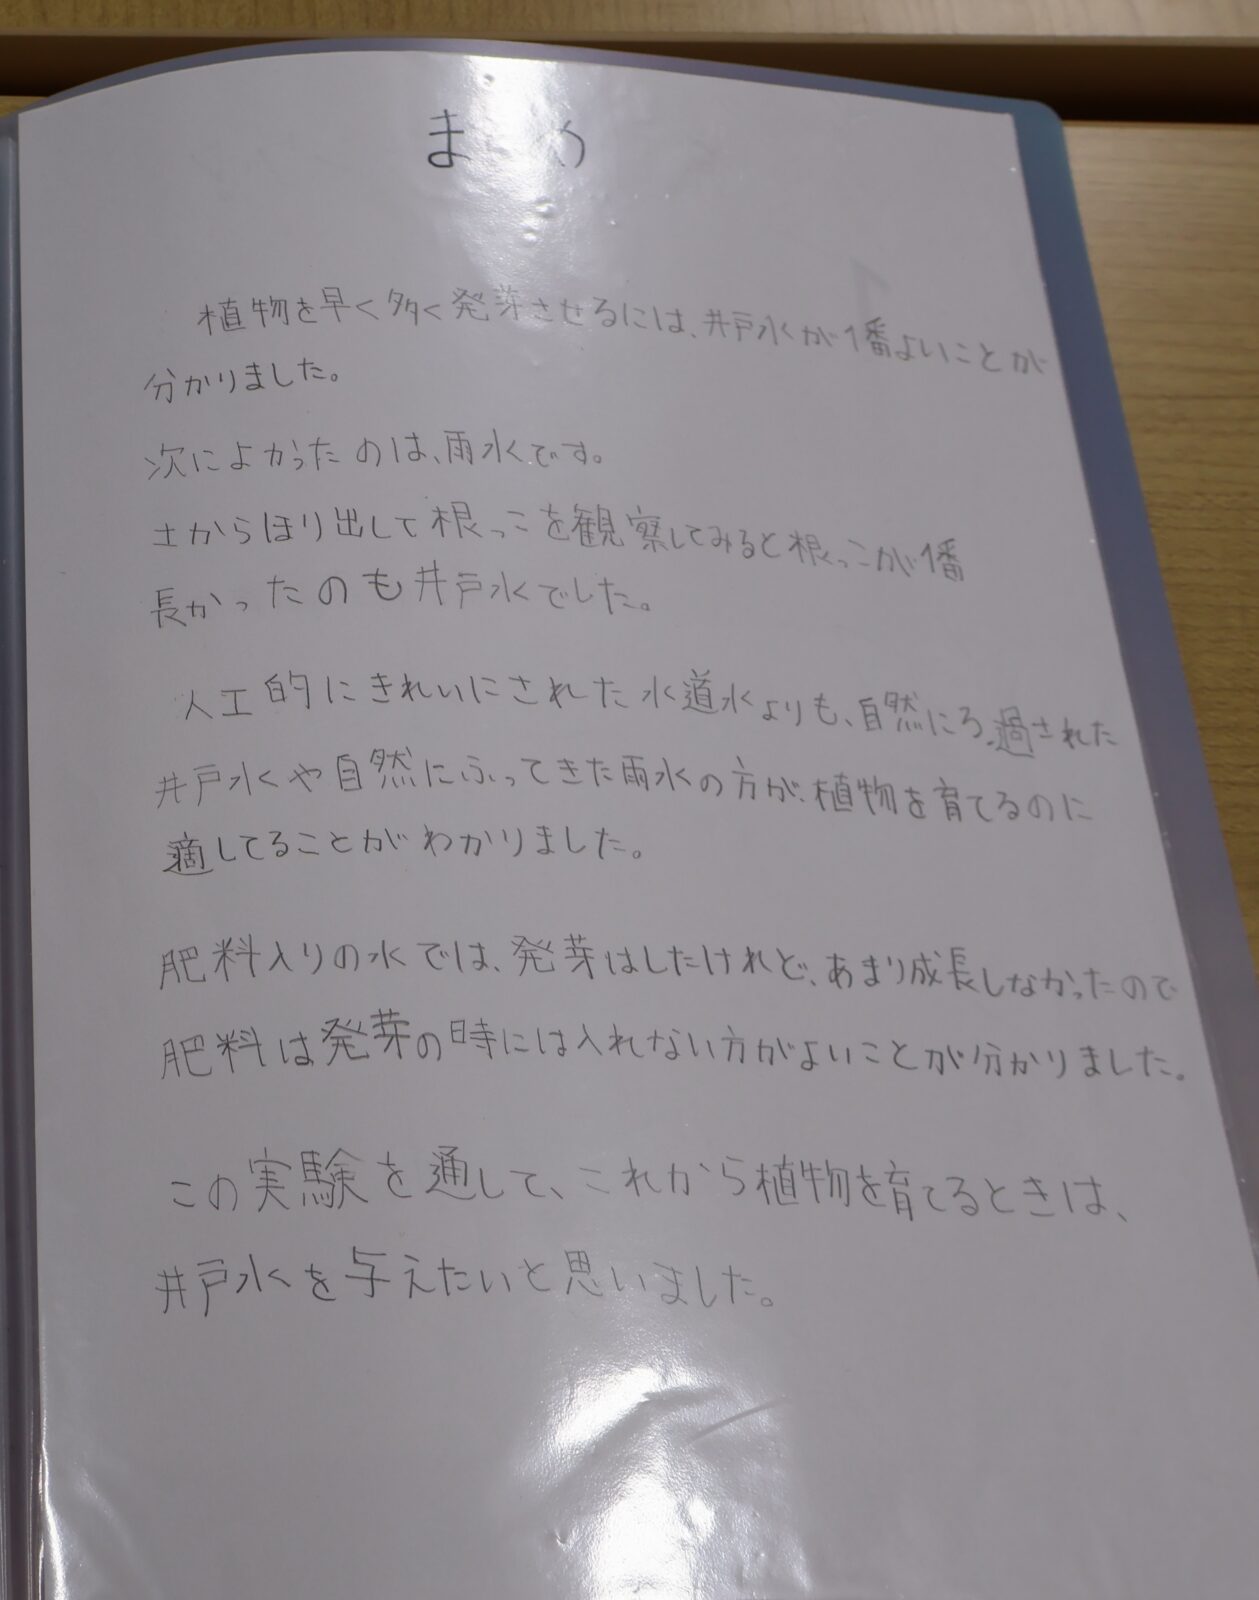 ま め
植物を早く多く発芽させるには、井戸水が1番よいことが
分かりました。
次によかったのは、雨水です。
土からほり出して根っこを観察してみると根っこが1番
長かったのも井戸水でした。
人工的にきれいにされた水道水よりも、自然にろ過された
井戸水や自然にふってきた雨水の方が、植物を育てるのに
適してることがわかりました。
肥料入りの水では、発芽はしたけれど、あまり成長しなかったので
肥料は発芽の時には入れない方がよいことが分かりました。
この実験を通して、これから植物を育てるときは、
井戸水を与えたいと思いました。